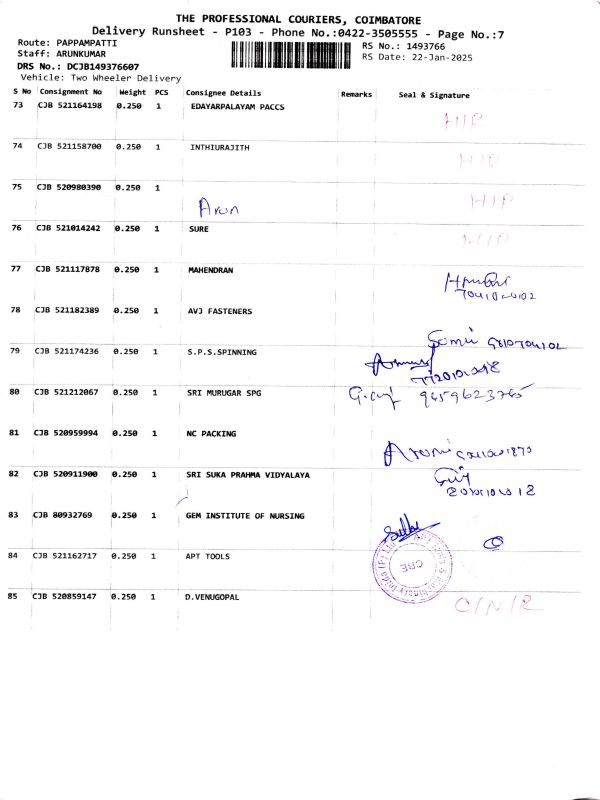 THE PROFESSIONAL COURIERS, COIMBATORE
Delivery Runsheet - P103 - Phone No.:0422-3505555 - Page No.:7
Route: PAPPAMPATTI
RS No.: 1493766
Staff: ARUNKUMAR
RS Date: 22-Jan-2025
DRS No.: DCJB149376607
Vehicle: Two Wheeler Delivery
S No Consignment No Weight PCS Consignee Details Remarks Seal & Signature
73 CJB 521164198 0.250 1 EDAYARPALAYAM PACCS
74 CJB 521158700 0.250 1 INTHIURAJITH
75 CJB 520980390 0.250 1
Arun
76 CJB 521014242 0.250 1 SURE
77 CJB 521117878 0.250 1 MAHENDRAN
78 CJB 521182389 0.250 1 AVJ FASTENERS
79 CJB 521174236 0.250 1 S.P.S.SPINNING
80 CJB 521212067 0.250 1 SRI MURUGAR SPG 9659623765
81 CJB 520959994 0.250 1 NC PACKING
82 CJB 520911900 0.250 1 SRI SUKA PRAHMA VIDYALAYA
83 CJB 80932769 0.250 1 GEM INSTITUTE OF NURSING
84 CJB 521162717 0.250 1 APT TOOLS
CBE
85 CJB 520859147 0.250 1 D.VENUGOPAL C/N/R